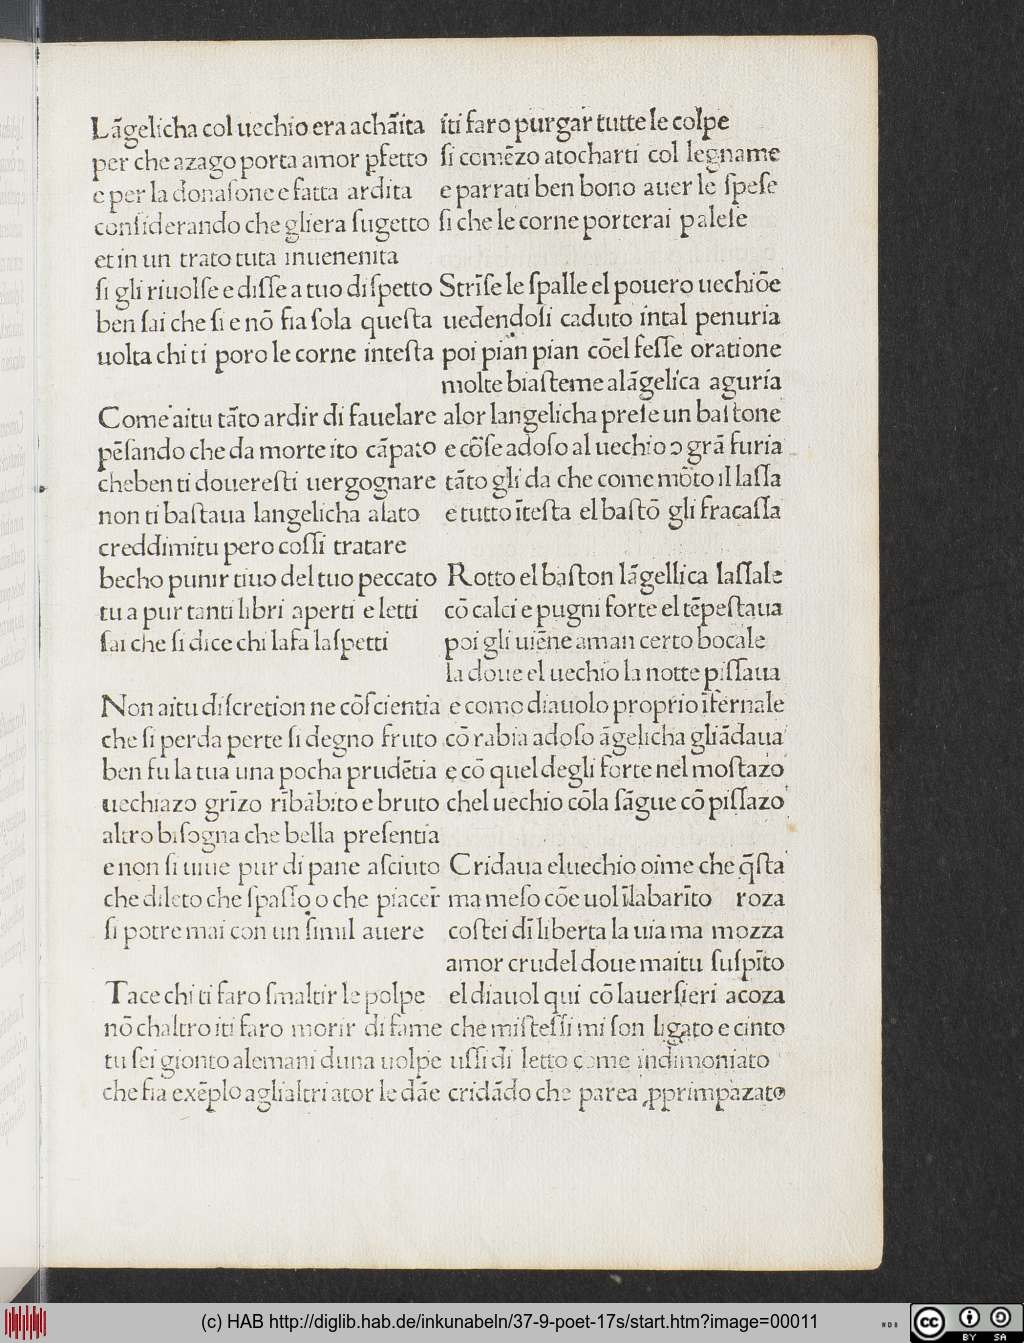 Lãgelicha col uechio era achãita
per che azago porta amor ꝑfetto
e per la donaſone e fatta ardita
conſiderando che gliera ſugetto
et in un trato tuta inuenenita
ſi gli riuolſe e diſſe a tuo diſpetto
ben ſai che ſi e nõ fia ſola queſta
uolta chi ti poro le corne inteſta
Come aitu tãto ardir di fauelare
pẽſando che da morte ito cãpato
cheben ti douereſti uergognare
non ti baſtaua langelicha alato
creddimitu pero coſſi tratare
becho punir tiuo del tuo peccato
tu a pur tanti libri aperti e letti
ſai che ſi dice chi lafa laſpetti
Non aitu diſcretion ne cõſcientia
che ſi perda perte ſi degno fruto
ben fu la tua una pocha prudẽtia
uechiazo grĩzo rĩbãbito e bruto
altro biſogna che bella preſentia
e non ſi uiue pur di pane aſciuto
che dileto che ſpaſſo o che piacer̃
ſi potre mai con un ſimil auere
Tace chi ti faro ſmaltir le polpe
nõ chaltro iti faro morir di fame
tu ſei gionto alemani duna uolpe
che fia exẽplo aglialtri ator le dãe
iti faro purgar tutte le colpe
ſi comẽzo atocharti col legname
e parrati ben bono auer le ſpeſe
ſi che le corne porterai paleſe
Strĩſe le ſpalle el pouero uechiõe
uedendoſi caduto intal penuria
poi pian pian cõel feſſe oratione
molte biaſteme alãgelica aguria
alor langelicha preſe un baſtone
e cõſe adoſo al uechio ɔ grã furia
tãto gli da che come mõto il laſſa
e tutto ĩteſta el baſtõ gli fracaſſa
Rotto el baſton lãgellica laſſale
cõ calci e pugni forte el tẽpeſtaua
poi gli uiẽne aman certo bocale
la doue el uechio la notte piſſaua
e como diauolo proprio ĩfernale
cõ rabia adoſo ãgelicha gliãdaua
e cõ quel degli forte nel moſtazo
chel uechio cõla ſãgue cõ piſſazo
Cridaua eluechio oime che q̃ſta
ma meſo cõe uol ĩlabarĩto roza
coſtei dĩ liberta la uia ma mozza
amor crudel doue maitu ſuſpĩto
el diauol qui cõ lauerſieri acoza
che miſteſſi mi ſon ligato e cinto
uſſi di letto come indimoniato
cridãdo che parea ꝓprimpazato
(c) HAB http://diglib.hab.de/inkunabeln/37-9-poet-17s/start.htm?image=00011
cc BY SA